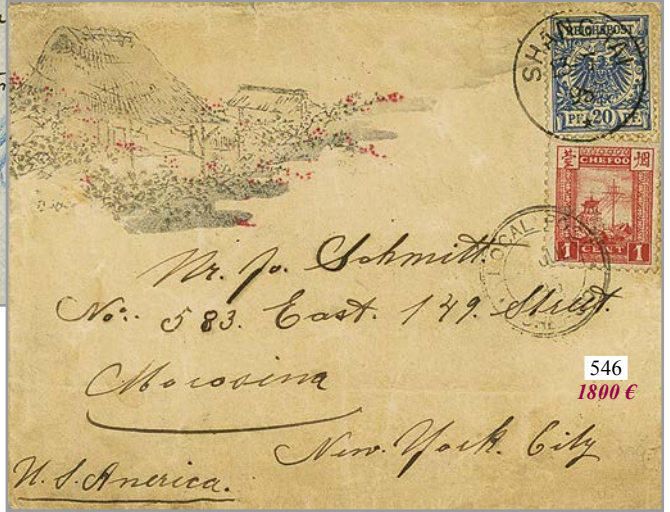 SHANGHAI
REICHSPOST
PF 20 PF
CHEFOO
1 CENT 1
LOCAL PO
Mr. Jo. Schmitt.
No. 583. East. 149. Street.
Morosina
New. York. City
U. S. America.
546
1800 €